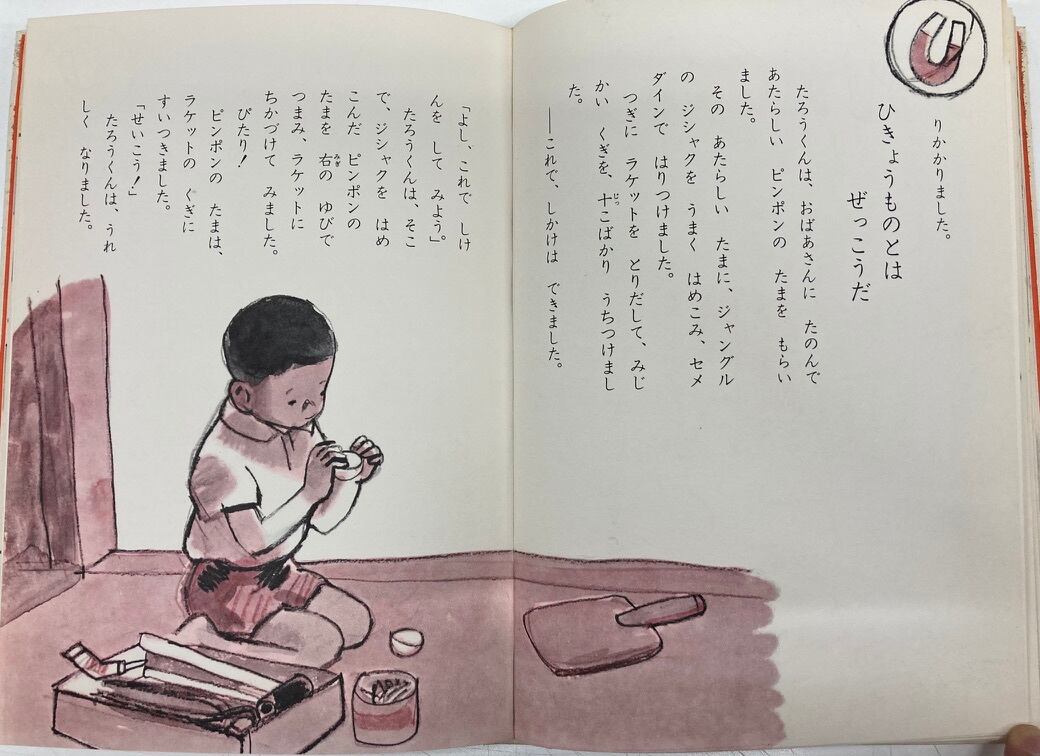 りかかりました。
ひきょうものとは
ぜっこうだ
たろうくんは、おばあさんに たのんで
あたらしい ピンポンの たまを もらい
ました。
その あたらしい たまに、ジャングル
の ジシャクを うまく はめこみ、セメ
ダインで はりつけました。
つぎに ラケットを とりだして、みじ
かい くぎを、十こばかり うちつけまし
た。
――これで、しかけは できました。
「よし、これで しけ
んを して みよう。」
たろうくんは、そこ
で、ジシャクを はめ
こんだ ピンポンの
たまを 右の ゆびで
つまみ、ラケットに
ちかづけて みました。
ぴたり！
ピンポンの たまは、
ラケットの くぎに
すいつきました。
「せいこう！」
たろうくんは、うれ
しく なりました。